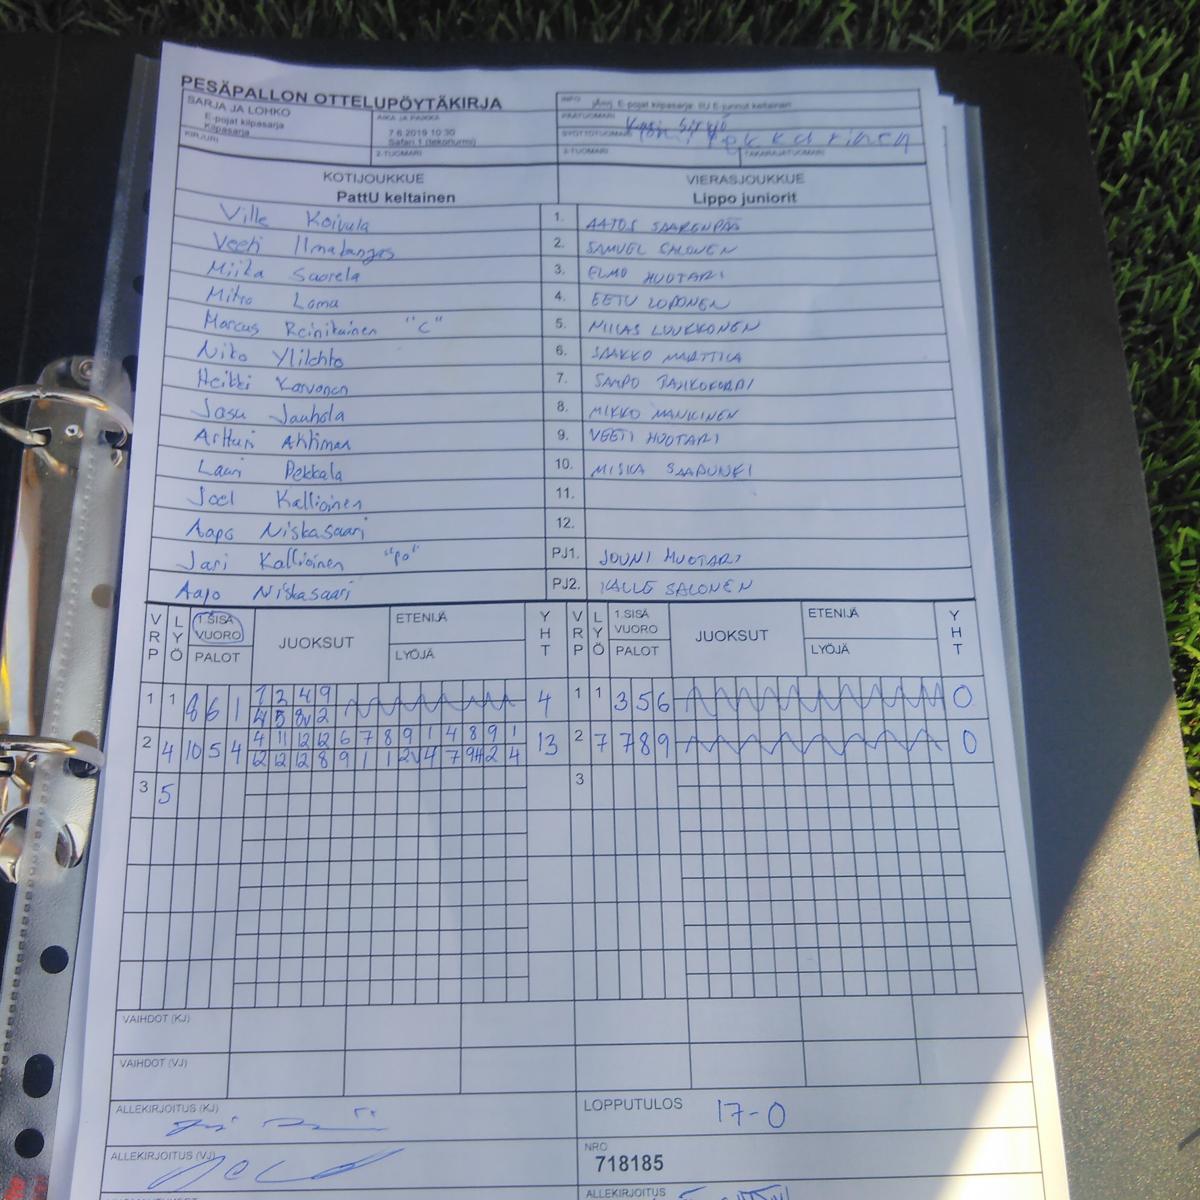 PESÄPALLON OTTELUPÖYTÄKIRJA
SARJA JA LOHKO
E-pojat kilpasarja
Kilpasarja
KIRJURI
AIKA JA PAIKKA
7.6.2019 10:30
Safari 1 (tekonurmi)
2-TUOMARI
INFO
E-pojat kilpasarja
PÄÄTUOMARI
SYÖTTÖTUOMARI
3-TUOMARI
TAKARAJATUOMARI
KOTIJOUKKUE VIERASJOUKKUE
PattU keltainen Lippo juniorit
Ville Koivula 1. AATOS SAARENPÄÄ
Veeti Ilmakangas 2. SAMUEL SALONEN
Miika Saarela 3. ELMO HUOTARI
Mitro Loma 4. EETU LOPONEN
Marcus Reinikainen "C" 5. NIILAS LUUKKONEN
Niko Ylilehto 6. SAKKO MARTTILA
Heikki Karvonen 7. SAMPO
Jasu Jauhola 8. MIKKO MANKINEN
Artturi Ahtiman 9. VEETI HUOTARI
Lauri Pekkala 10. MISKA SAARUNKI
Joel Kallioinen 11.
Aapo Niskasaari 12.
Jari Kallioinen "PJ" PJ1. JOUNI HUOTARI
Aapo Niskasaari PJ2. KALLE SALONEN
VRP LYÖ 1.SISÄ VUORO PALOT JUOKSUT ETENIJÄ LYÖJÄ YHT VRP LYÖ 1.SISÄ VUORO PALOT JUOKSUT ETENIJÄ LYÖJÄ YHT
1 1 8 6 1 1 3 4 9 4 1 1 3 5 6 0
4 5 8V 2
2 4 10 5 4 4 11 12 12 6 7 8 9 1 4 8 9 1 13 2 7 7 8 9 0
12 12 12 8 9 1 1 2V 4 7 9H 2 4
3 5 3
VAIHDOT (KJ)
VAIHDOT (VJ)
ALLEKIRJOITUS (KJ) LOPPUTULOS 17-0
ALLEKIRJOITUS (VJ) NRO
718185
ALLEKIRJOITUS